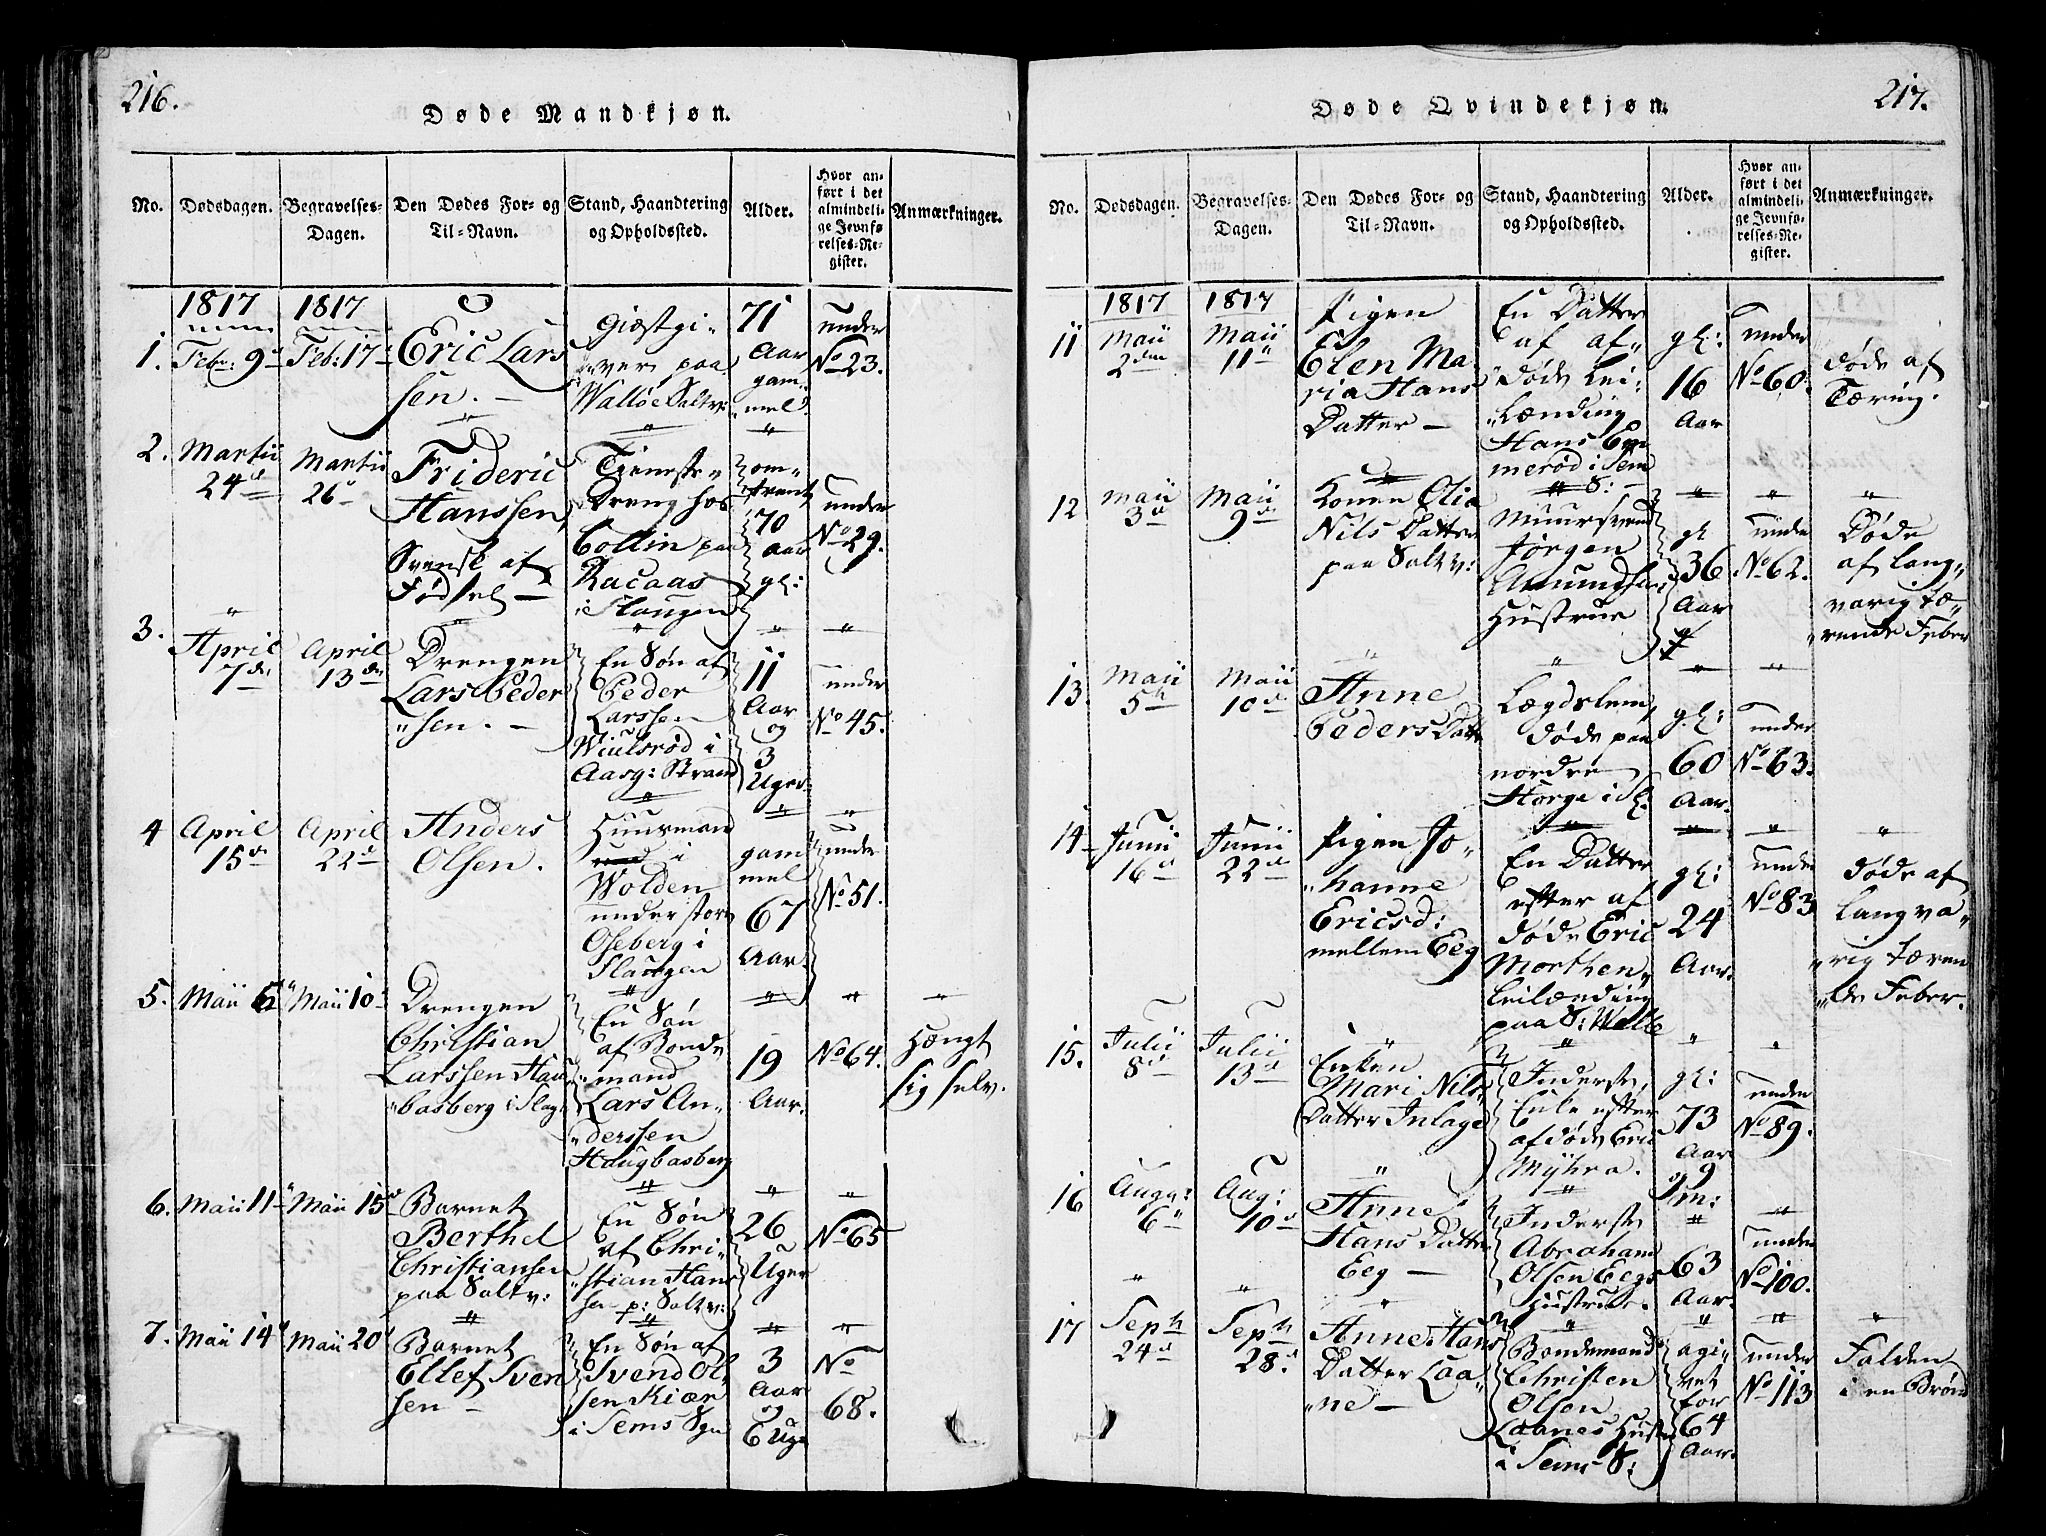 216.
Døde Mandkjøn.
No.
Dødsdagen.
Begravelses-
Dagen.
Den Dødes For- og
Til-Navn.
Stand, Haandtering
og Opholdssted.
Alder.
Hvor an-
ført i det
almindeli-
ge Jevnfø-
relses-Re-
gister.
Anmærkninger.
1.
1817
Febr: 9
1817
Feb: 17
Eric Lars
sen. —
Giæstgi-
ver paa
Walløe Saltv:
71
Aar
gam
mel
under
No 23.
2.
Martii
24d
Martii
26
Frideric
Hanssen,
Svensk af
Fødsel —
Tieneste
Dreng hos
Collin paa
Racaas
i Slaugen
om
trent
70
aar
gl:
under
No 29.
3.
April
7de
April
13de
Drengen
Lars Peder
"sen. —
En Søn af
Peder
Larssen
Wiulsrød i
Aasg: Strand
11
Aar
og
3
Uger
under
No 45.
4
April
15de
April
22d
Anders
Olsen.
Huusmand
i
Wolden
under store
Oseberg i
Slaugen
gam
mel
67
Aar.
under
No 51.
5.
Maii 6
Maii 10
Drengen
Christian
Larssen Hau
"basberg i Slag:
En Søn
af Bonde
"mand
Lars An"
"derssen
Haugbasberg
19
Aar.
No 64.
Hængt
sig selv.
6.
Maii 11
Maii 15
Barnet
Berthel
Christiansen
paa Saltv:
En Søn
af Chri"
"stian Hans
sen p: Saltv:
26
Uger
No 65
7.
Maii 14
Maii 20
Barnet
Ellef Sven
sen —
En Søn af
Svend Ol"
sen Kiær
i Sems Sgn
3
Aar
og
6 Uge
No
68.
217.
Døde Qvindekjøn.
No.
Dødsdagen.
Begravelses-
Dagen.
Den Dødes For- og
Til-Navn.
Stand, Haandtering
og Opholdssted.
Alder.
Hvor an-
ført i det
almindeli-
ge Jevnfø-
relses-Re-
gister.
Anmærkninger.
11
1817
Maii
2den
1817
Maii
11
Pigen
Elen Ma"
ria Hans
Datter —
En Datter
af af"
"døde Lei"
"lænding
Hans Em
merød i Sem
S: —
gl:
16
Aar
under
No 60.
døde af
Tæring.
12
Maii
3d
Maii
9de
Konen Olia
Nils Datter
paa Saltv:
Muursvend
Jørgen
Amundsens
Hustrue
gl
36
Aar
under
No 62.
Døde
af lang"
varig tæ"
"rende Feber
13.
Maii
5h
Maii
10d
Anne
Peders Datt
Lægdslem,
døde paa
nordre
Horge i S.
gl:
60
Aar.
under
No 63.
14
Junii
16d
Junii
22d
Pigen Jo"
"hanne
Ericsd:
mellem Eeg
En Datter
efter af
døde Eric
Morthen"
Leilænding
paa S: Welle
gl:
24
Aar.
under
No 83
døde af
langva"
"rig tæren
"de Feber.
15.
Julii
8d
Julii
13d
Enken
Mari Nils"
Datter Inlage
Inderste,
Enke efter
afdøde Eric
Myhra.
gl:
73
Aar
og 9
m:
under
No 89.
16
Aug:
6
Aug:
10d
Anne
Hans Datter
Eeg —
Inderste
Abraham
Olsen Eegs
Hustrue.
63
Aar.
under
No 100.
17
Septh
24d
Septh
28.
Anne Hans
Datter Laa"
"ne —
Bondemand
Christen
Olsen
Laanes Hustr
i Sems S:
agi"
vet
for
64
Aar.
under
No 113
Falden
i en Brønd